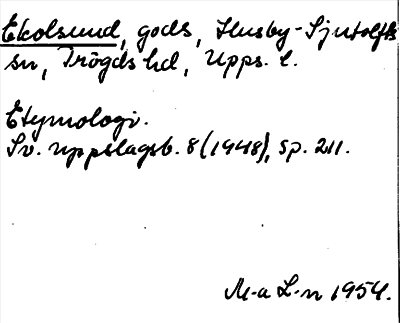 Ekolsund, gods, Husby-Sjutolfts
sn, Trögds hd, Upps. l.
Etymologi.
Sv. uppslagsb. 8 (1948), sp. 211.
M-a L-n 1954.